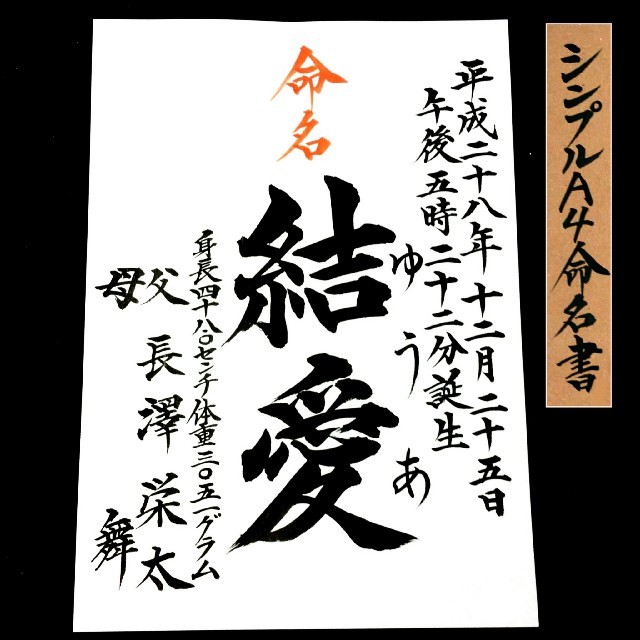 シンプルA4命名書
平成二十八年十二月二十五日
午後五時二十二分誕生
命名
ゆうあ
結愛
身長四十八.〇センチ体重三〇五一グラム
父 長澤栄太
母 舞